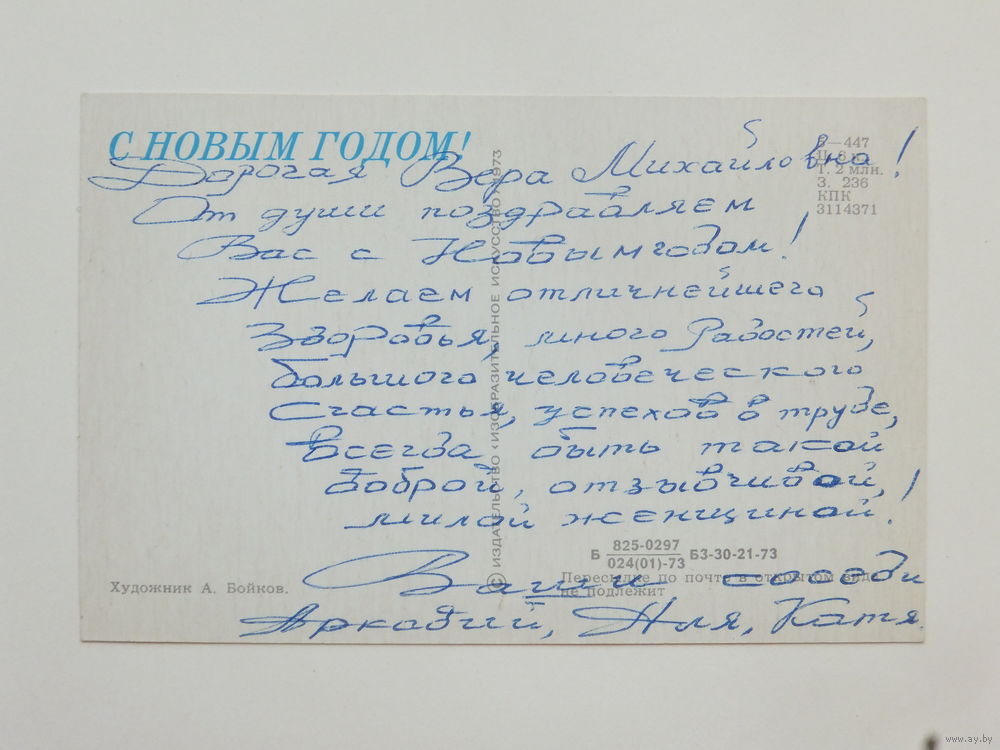 С НОВЫМ ГОДОМ!
Дорогая Вера Михайловна!
От души поздравляем
Вас с Новым годом!
Желаем отличнейшего
Здоровья, много Радостей,
большого человеческого
Счастья, успехов в труде,
Всегда быть такой
доброй, отзывчивой,
милой женщиной!
Ваши соседи
Аркадий, Эля, Катя.
447
Т. 2 млн.
З. 236
КПК
3114371
© ИЗДАТЕЛЬСТВО «ИЗОБРАЗИТЕЛЬНОЕ ИСКУССТВО» 1973
Б 825-0297 БЗ-30-21-73
024(01)-73
Пересылке по почте в открытом виде
не подлежит
Художник А. Бойков.
www.ay.by